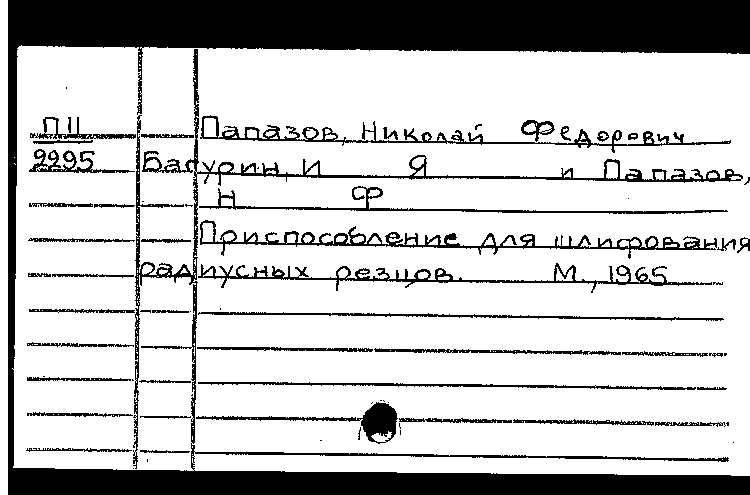 П11 Папазов, Николай Федорович
9295 Батурин, И Я и Папазов,
Н Ф
Приспособление для шлифования
радиусных резцов. М., 1965